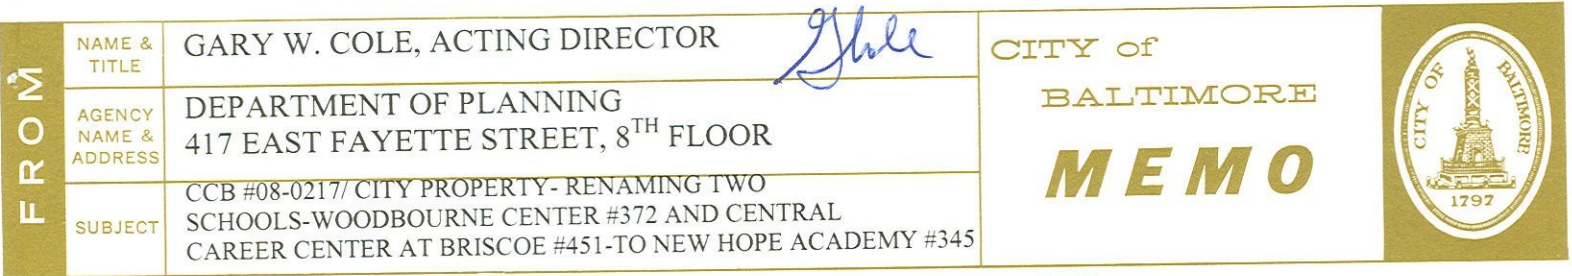 FROM
NAME &
TITLE
GARY W. COLE, ACTING DIRECTOR
AGENCY
NAME &
ADDRESS
DEPARTMENT OF PLANNING
417 EAST FAYETTE STREET, 8TH FLOOR
SUBJECT
CCB #08-0217/ CITY PROPERTY- RENAMING TWO
SCHOOLS-WOODBOURNE CENTER #372 AND CENTRAL
CAREER CENTER AT BRISCOE #451-TO NEW HOPE ACADEMY #345
CITY of
BALTIMORE
MEMO
CITY OF BALTIMORE
1797